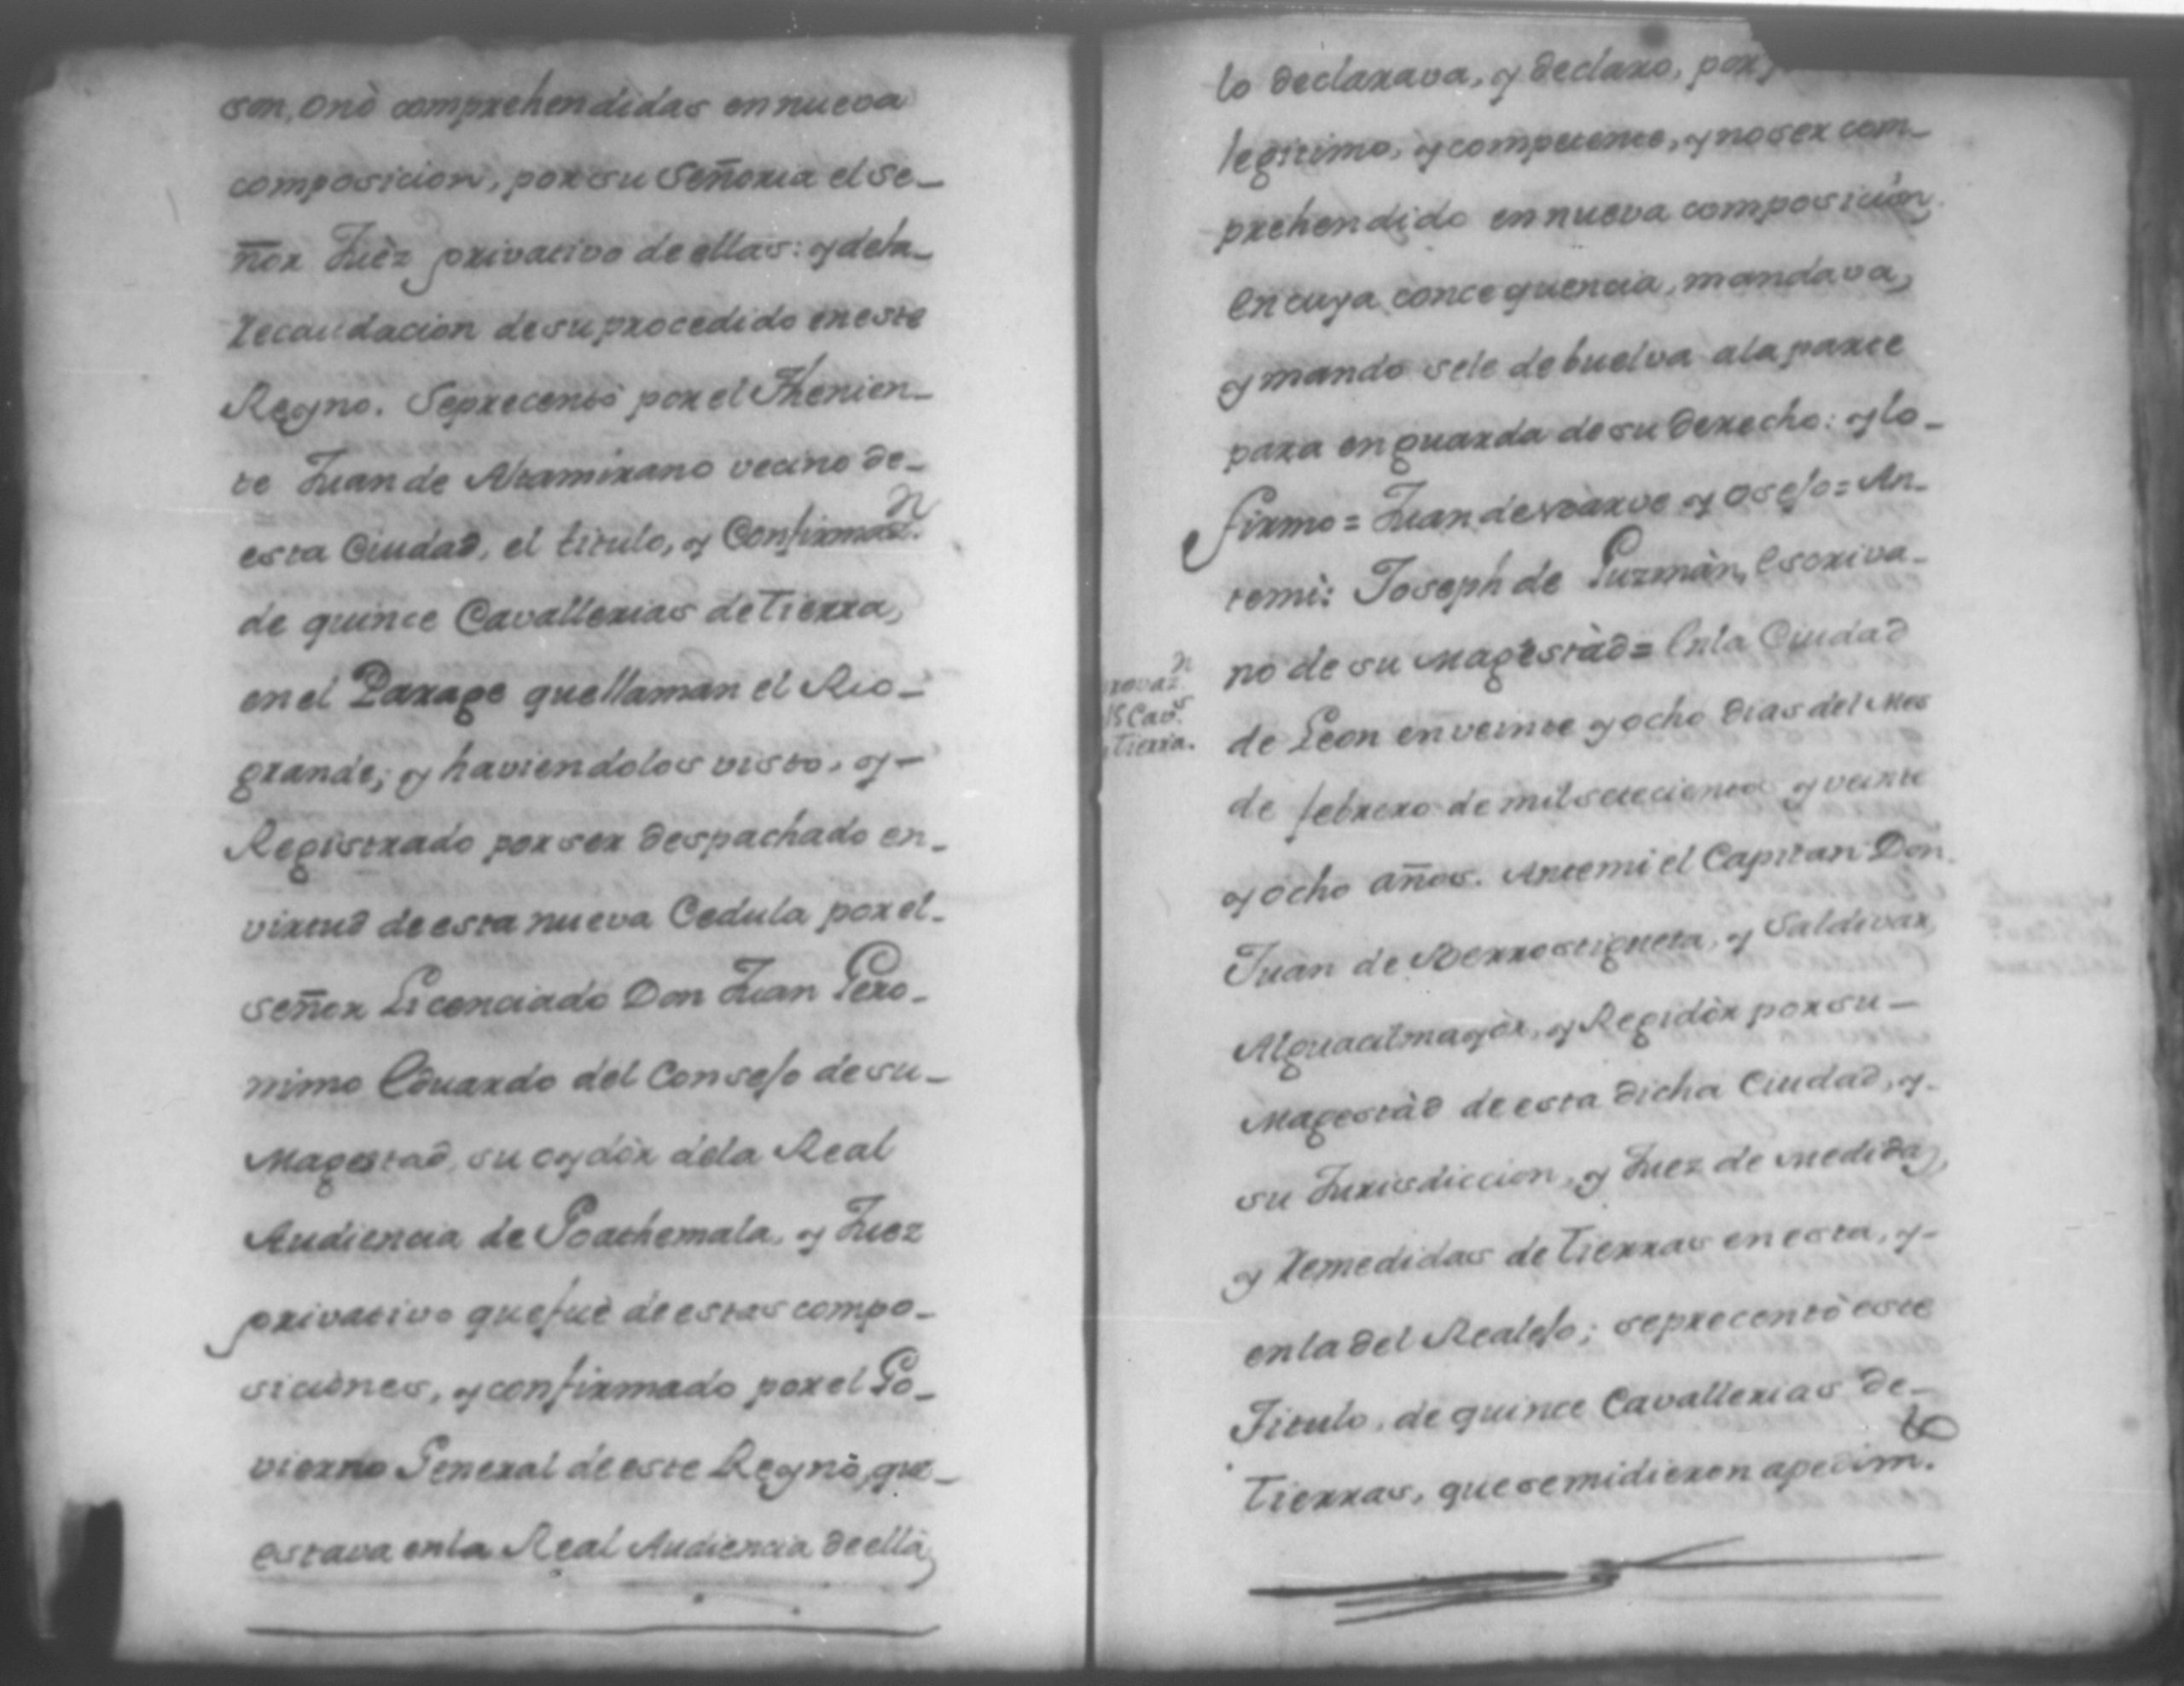 son, onò comprehendidas en nueva
composicion, por su Señoria el Se-
ñor Juèz privativo de ellas: y dela-
recaudacion de su procedido en este
Reyno. Seprecentò por el Thenien-
te Juan de Altamirano vecino de-
esta Ciudad, el titulo, y Confirmaz.n
de quince Cavallerias de tierra,
en el Parage que llaman el Rio-
grande; y haviendolos visto, y-
Registrado por ser despachado en-
virtud de esta nueva Cedula por el-
señor Licenciado Don Juan Gero-
nimo Eduardo del Consejo de su-
Magestad, su oydòr dela Real
Audiencia de Goathemala, y Juez
privativo que fuè de estas compo-
siciònes, y confirmado por el Go-
vierno General de este Reyno, que-
estava en la Real Audiencia de ella,
lo declarava, y declaro, por
legitimo, y competente, y no ser com-
prehendido en nueva composicion,
En cuya concequencia, mandava,
y mando sele debuelva ala parte
para en guarda de su derecho: y lo-
firmo = Juan de y Osejo = An-
temi: Joseph de Guzmàn, Escriva-
no de su Magestàd = En la Ciudad
rovaz.n
15 Cav.s
tierra.
de Leon en veinte y ocho dias del Mes
de febrero de mil setecientos y veinte
y ocho años. Antemi el Capitan Don
Juan de Berrostigueta, y Saldivar,
Alguacil mayòr, y Regidòr por su-
Magestàd de esta dicha Ciudad, y-
su Jurisdiccion, y Juez de medidas,
y remedidas de tierras en esta, y-
en la del Realejo; seprecentò este
Titulo, de quince Cavallerias de-
tierras, que se midieron a pedim.to